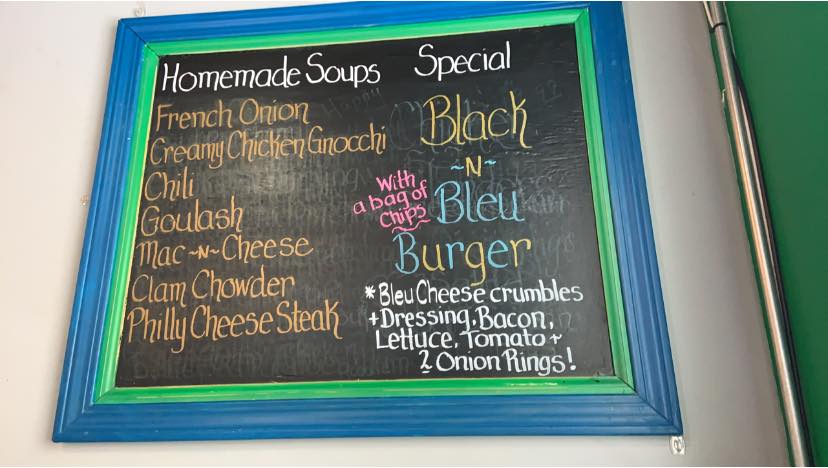 Homemade Soups
French Onion
Creamy Chicken Gnocchi
Chili
Goulash
Mac ~N~ Cheese
Clam Chowder
Philly Cheese Steak
Special
Black
~N~
Bleu
Burger
With
a bag of
chips
* Bleu Cheese crumbles
+ Dressing, Bacon,
Lettuce, Tomato +
2 Onion Rings!